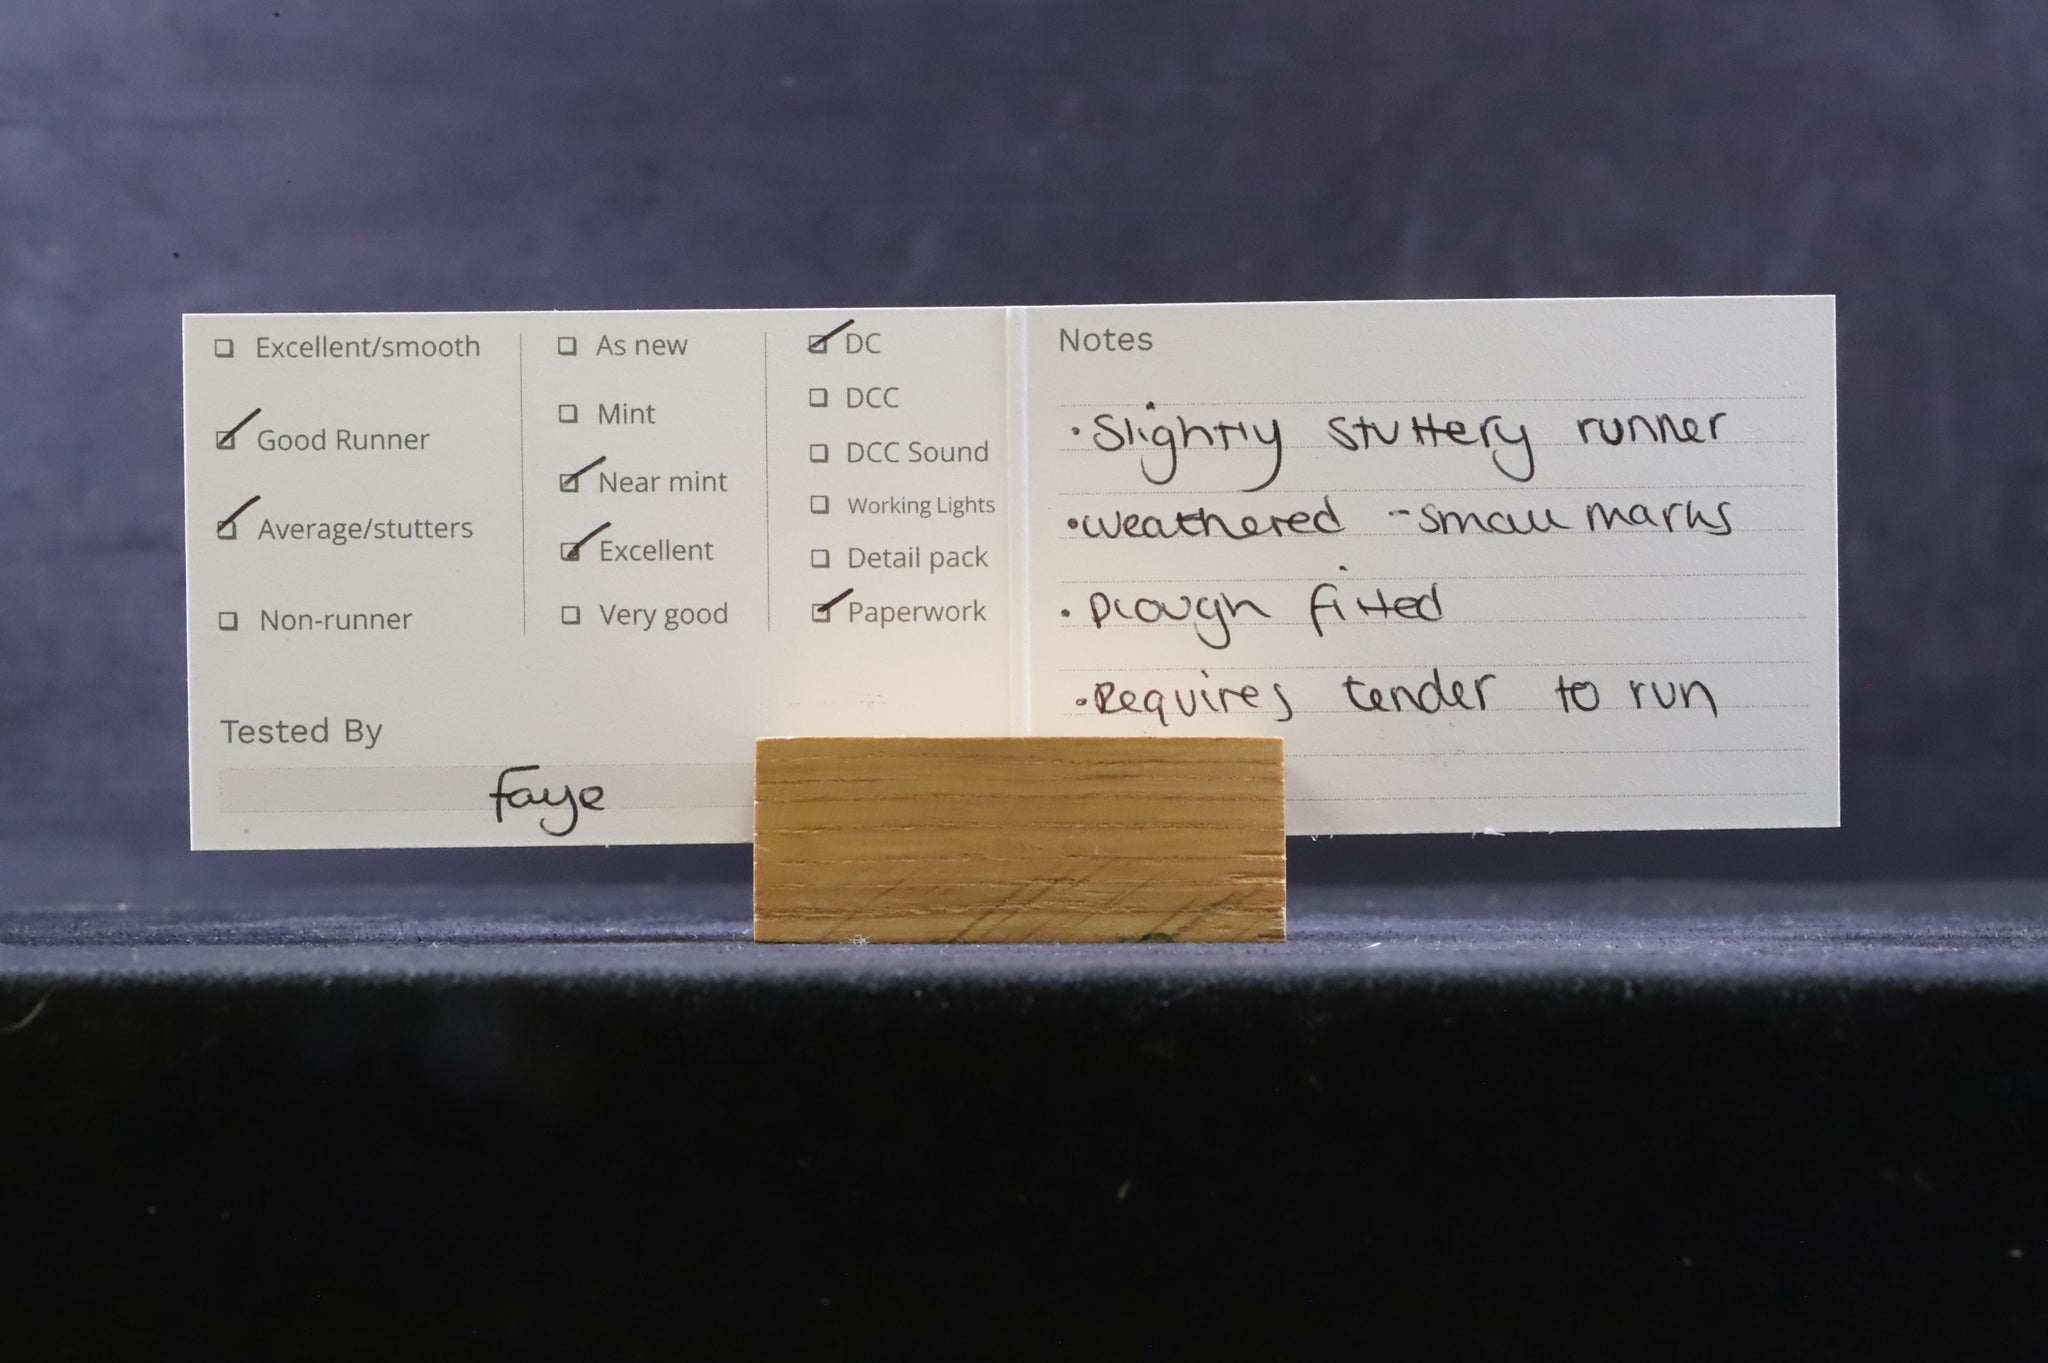 ☐ Excellent/smooth
☑ Good Runner
☑ Average/stutters
☐ Non-runner
☐ As new
☐ Mint
☑ Near mint
☑ Excellent
☐ Very good
☑ DC
☐ DCC
☐ DCC Sound
☐ Working Lights
☐ Detail pack
☑ Paperwork
Tested By
Faye
Notes
• Slightly stuttery runner
• Weathered - small marks
• Plough fitted
• Requires tender to run